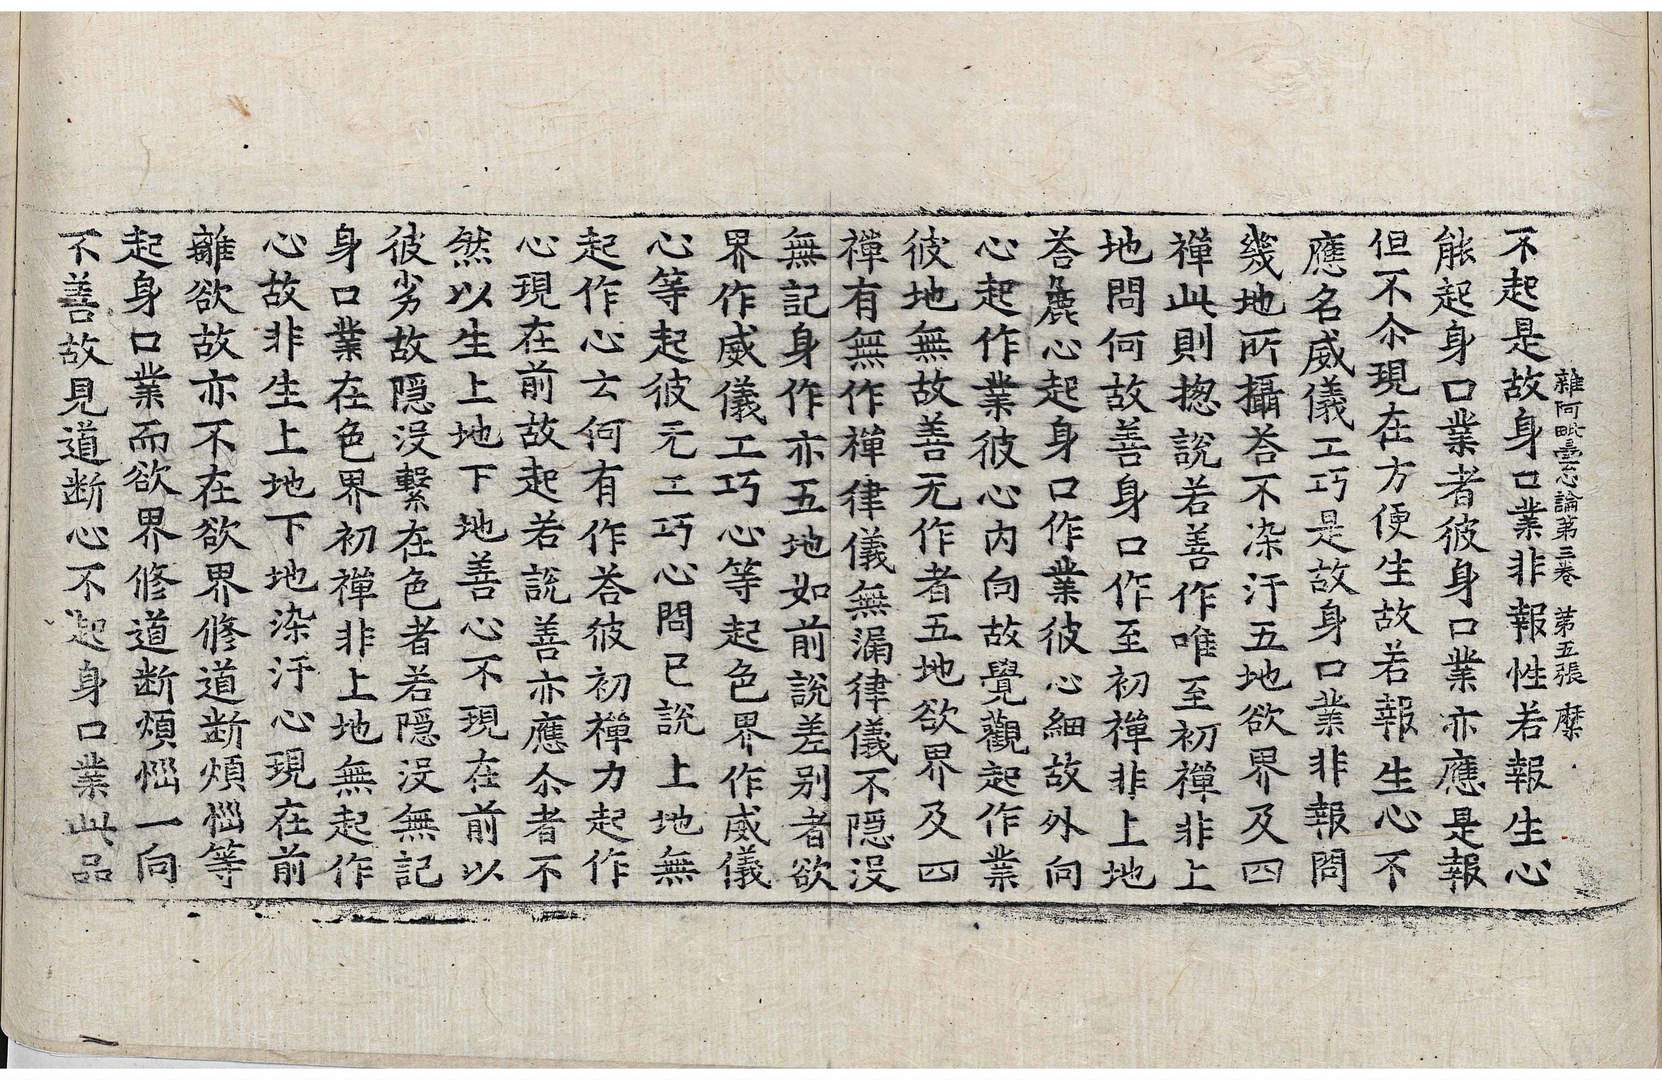 雜阿毗曇心論第三卷 第五張 縻
不起是故身口業非報性若報生心
能起身口業者彼身口業亦應是報
但不尒現在方便生故若報生心不
應名威儀工巧是故身口業非報問
幾地所攝荅不染汙五地欲界及四
禪此則揔說若善作唯至初禪非上
地問何故善身口作至初禪非上地
荅麁心起身口作業彼心細故外向
心起作業彼心内向故覺觀起作業
彼地無故善无作者五地欲界及四
禪有無作禪律儀無漏律儀不隠没
無記身作亦五地如前說差别者欲
界作威儀工巧心等起色界作威儀
心等起彼无工巧心問已說上地無
起作心云何有作荅彼初禪力起作
心現在前故起若說善亦應尒者不
然以生上地下地善心不現在前以
彼劣故隠没繫在色者若隠没無記
身口業在色界初禪非上地無起作
心故非生上地下地染汙心現在前
離欲故亦不在欲界修道断煩惱等
起身口業而欲界修道断煩惱一向
不善故見道断心不起身口業此品